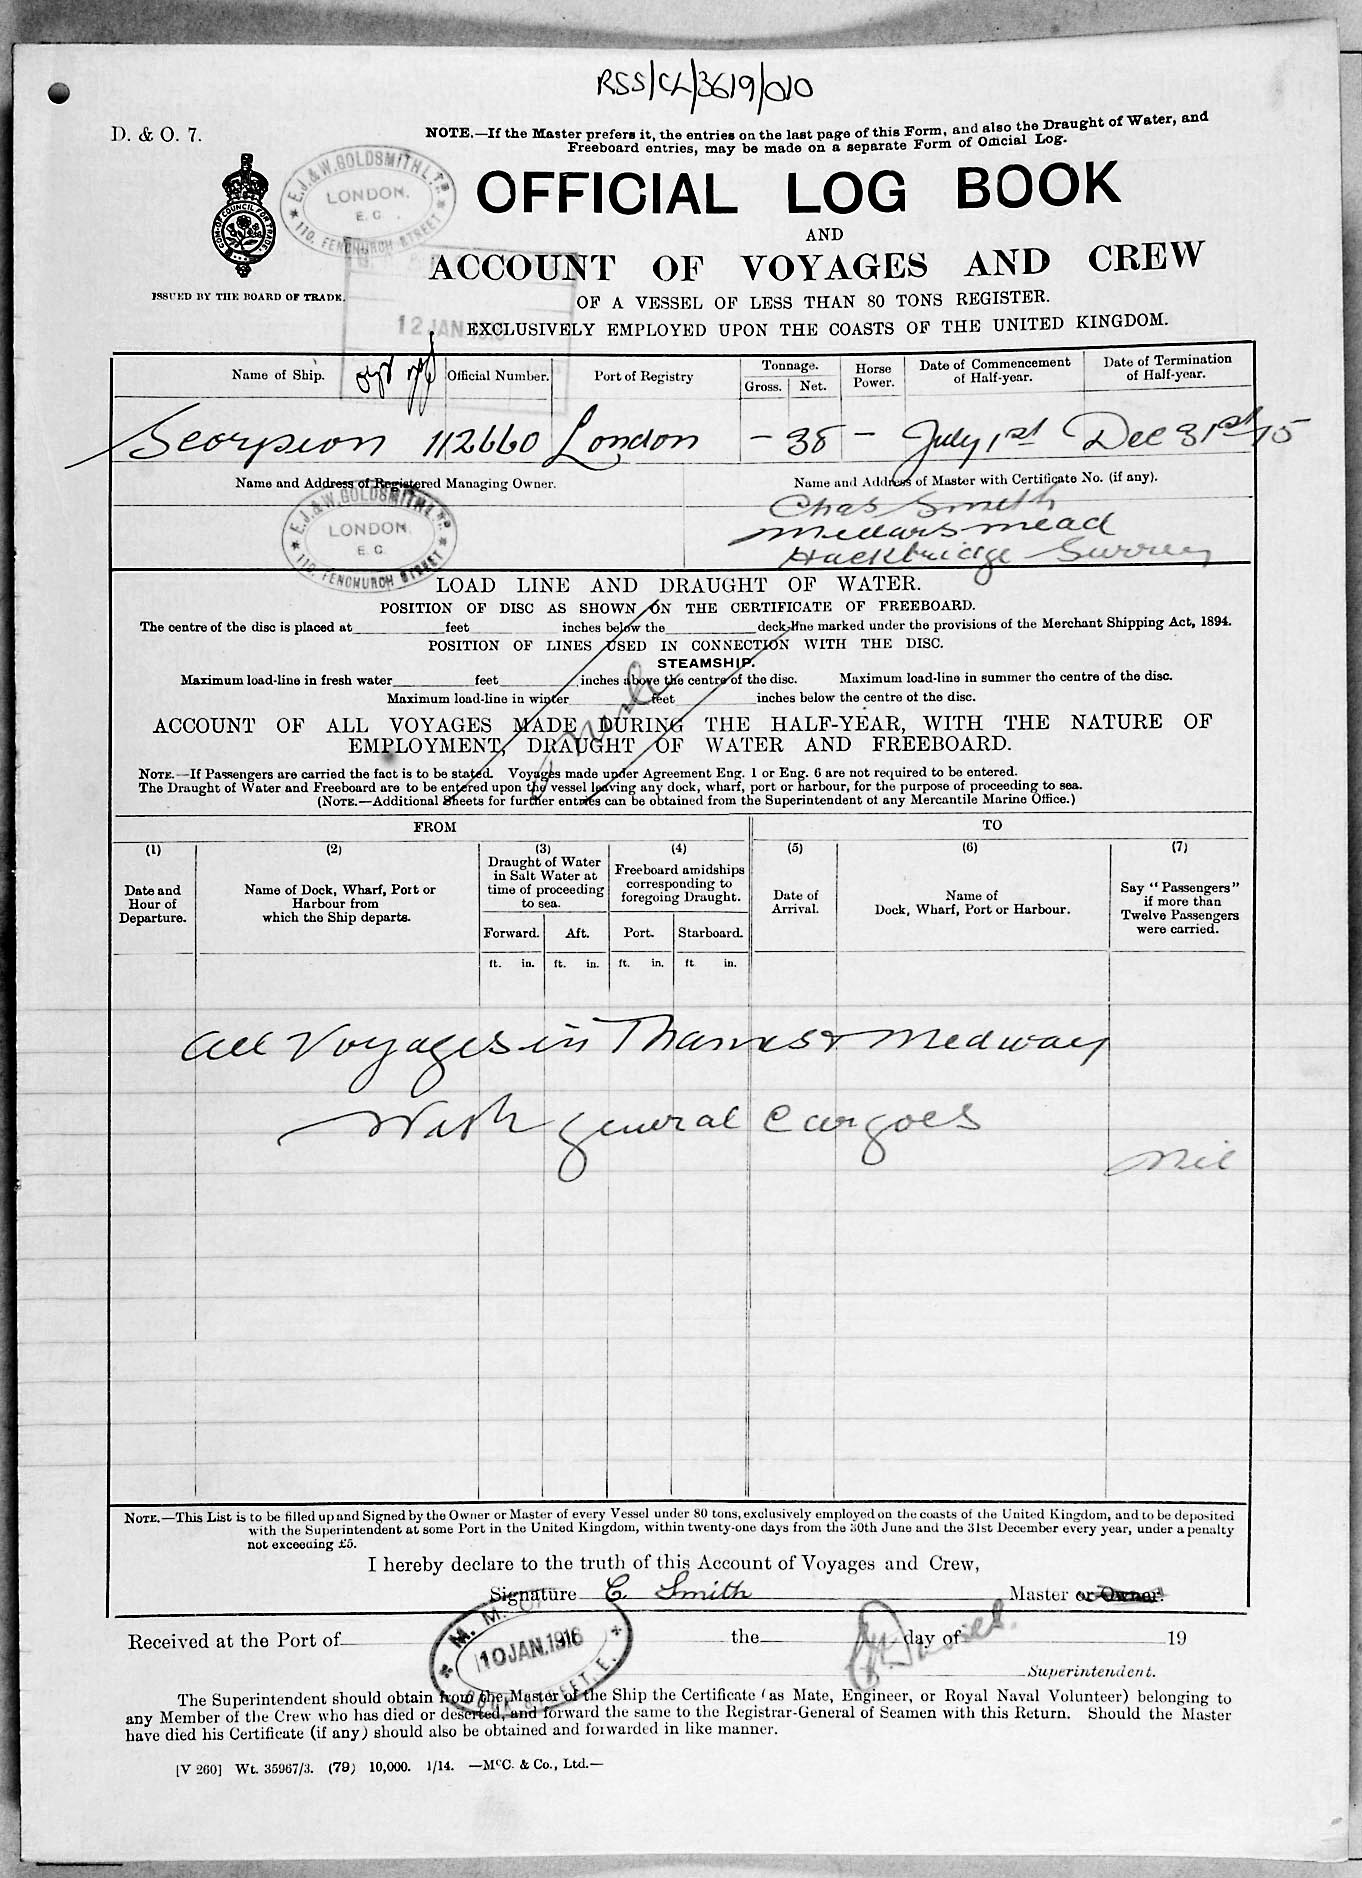 RSS/CL/3619/010
D. & O. 7.
NOTE.—If the Master prefers it, the entries on the last page of this Form, and also the Draught of Water, and
Freeboard entries, may be made on a separate Form of Official Log.
E.J. & W. GOLDSMITH LTD
LONDON.
E.C.
110, FENCHURCH STREET
OFFICIAL LOG BOOK
AND
ACCOUNT OF VOYAGES AND CREW
ISSUED BY THE BOARD OF TRADE.
OF A VESSEL OF LESS THAN 80 TONS REGISTER.
12 JAN 1916
EXCLUSIVELY EMPLOYED UPON THE COASTS OF THE UNITED KINGDOM.
Name of Ship. Official Number. Port of Registry Tonnage. Horse Power. Date of Commencement of Half-year. Date of Termination of Half-year.
Gross. Net.
Scorpion 112660 London – 38 – July 1st Dec 31st 15
Name and Address of Registered Managing Owner. Name and Address of Master with Certificate No. (if any).
E.J. & W. GOLDSMITH LTD
LONDON.
E.C.
110, FENCHURCH STREET
Chas Smith
Medars mead
Hackbridge Surrey
LOAD LINE AND DRAUGHT OF WATER.
POSITION OF DISC AS SHOWN ON THE CERTIFICATE OF FREEBOARD.
The centre of the disc is placed at feet inches below the deck-line marked under the provisions of the Merchant Shipping Act, 1894.
POSITION OF LINES USED IN CONNECTION WITH THE DISC.
STEAMSHIP.
Maximum load-line in fresh water feet inches above the centre of the disc. Maximum load-line in summer the centre of the disc.
Maximum load-line in winter feet inches below the centre of the disc.
ACCOUNT OF ALL VOYAGES MADE DURING THE HALF-YEAR, WITH THE NATURE OF
EMPLOYMENT, DRAUGHT OF WATER AND FREEBOARD.
NOTE.—If Passengers are carried the fact is to be stated. Voyages made under Agreement Eng. 1 or Eng. 6 are not required to be entered.
The Draught of Water and Freeboard are to be entered upon the vessel leaving any dock, wharf, port or harbour, for the purpose of proceeding to sea.
(NOTE.—Additional Sheets for further entries can be obtained from the Superintendent of any Mercantile Marine Office.)
FROM TO
(1) (2) (3) (4) (5) (6) (7)
Date and
Hour of
Departure.
Name of Dock, Wharf, Port or
Harbour from
which the Ship departs.
Draught of Water
in Salt Water at
time of proceeding
to sea.
Freeboard amidships
corresponding to
foregoing Draught.
Date of
Arrival.
Name of
Dock, Wharf, Port or Harbour.
Say "Passengers"
if more than
Twelve Passengers
were carried.
Forward. Aft. Port. Starboard.
ft. in. ft. in. ft. in. ft in.
All Voyages in Thames & Medway
With general Cargoes
Nil
NOTE.—This List is to be filled up and Signed by the Owner or Master of every Vessel under 80 tons, exclusively employed on the coasts of the United Kingdom, and to be deposited
with the Superintendent at some Port in the United Kingdom, within twenty-one days from the 30th June and the 31st December every year, under a penalty
not exceeding £5.
I hereby declare to the truth of this Account of Voyages and Crew,
Signature C Smith Master or Owner.
M. M. O.
10 JAN. 1916
DOCK STREET, E.
Received at the Port of the day of 19
Superintendent.
The Superintendent should obtain from the Master of the Ship the Certificate (as Mate, Engineer, or Royal Naval Volunteer) belonging to
any Member of the Crew who has died or deserted, and forward the same to the Registrar-General of Seamen with this Return. Should the Master
have died his Certificate (if any) should also be obtained and forwarded in like manner.
[V 260] Wt. 35967/3. (79) 10,000. 1/14. —McC. & Co., Ltd.—